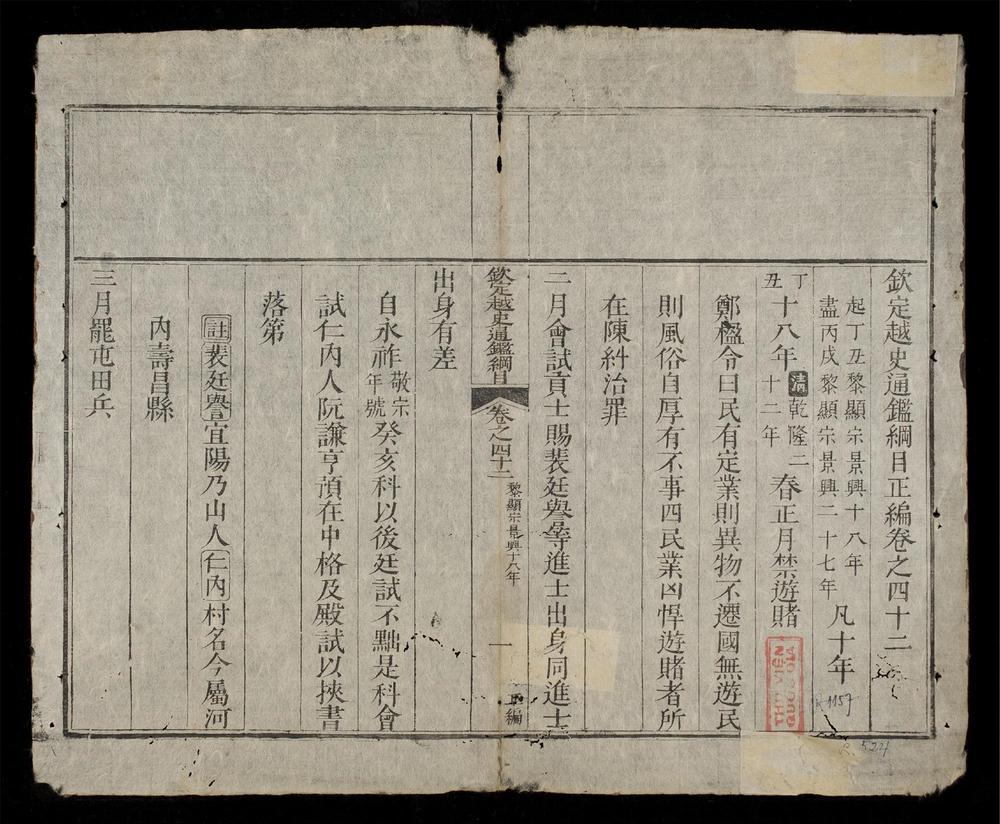 欽定越史通鑑綱目正編卷之四十二
起丁丑黎顯宗景興十八年
盡丙戌黎顯宗景興二十七年
凡十年
丁丑十八年清乾隆二十二年春正月禁遊賭
鄭楹令曰民有定業則異物不遷國無遊民
則風俗自厚有不事四民業凶悍遊賭者所
在陳糾治罪
二月會試貢士賜裴廷譽等進士出身同進士
欽定越史通鑑綱目 卷之四十二 黎顯宗景興十八年 一 正編
出身有差
自永祚敬宗年號癸亥科以後廷試不黜是科會
試仁內人阮謙亨預在中格及殿試以挾書
落第
註裴廷譽宜陽乃山人仁內村名今屬河
內壽昌縣
三月罷屯田兵
THƯ VIỆN
QUỐC GIA
R 1157
R. 524